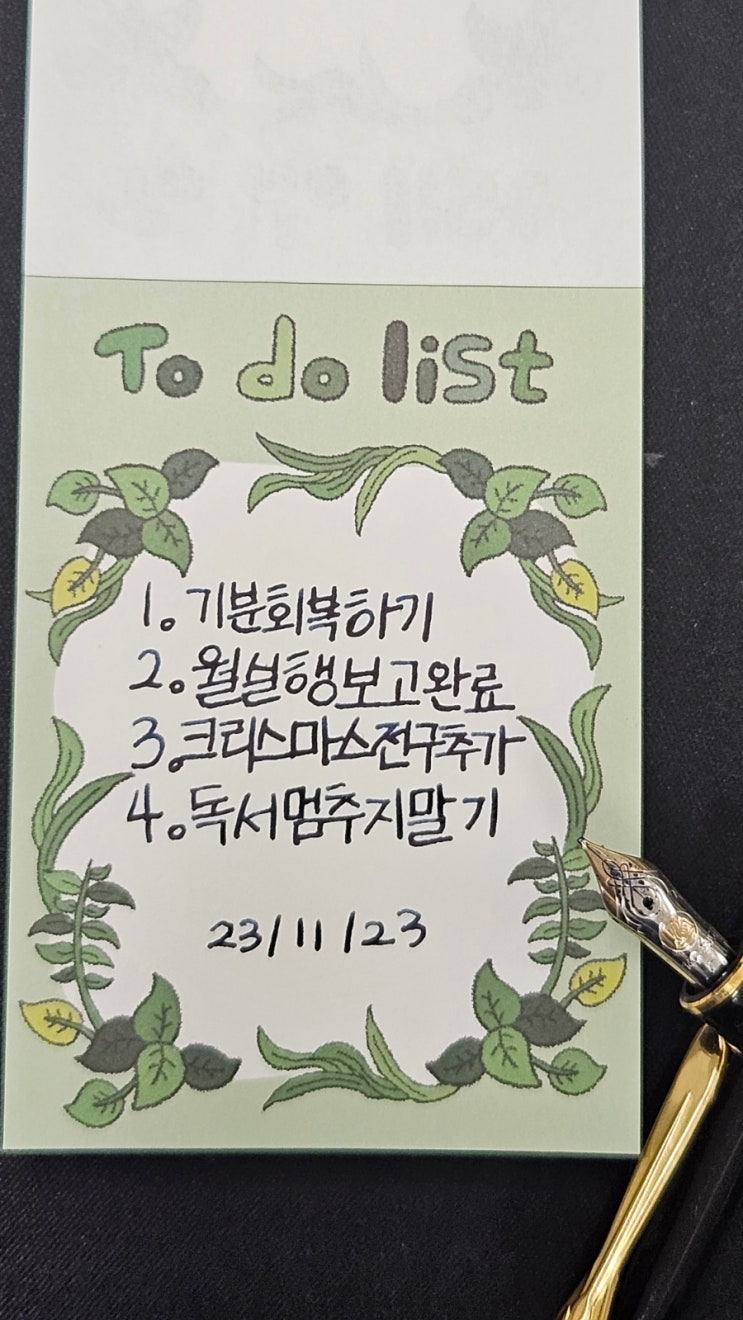 To do list
1. 기분회복하기
2. 월실행보고완료
3. 크리스마스전구추가
4. 독서멈추지말기
23/11/23